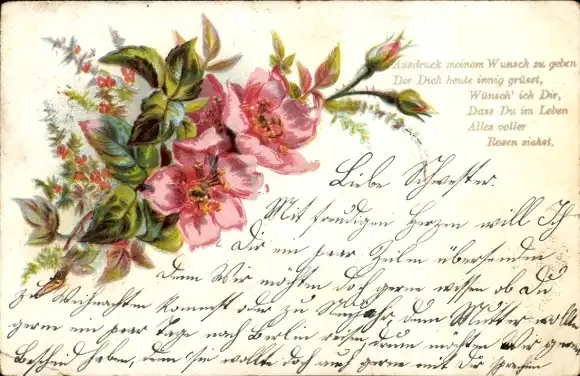 Ausdruck meinem Wunsch zu geben
Der Dich heute innig grüsst,
Wünsch' ich Dir,
Dass Du im Leben
Alles voller
Rosen siehst.
Liebe Schwester.
Mit freudigen Herzen will Ich
Dir ein paar Zeilen übersenden
Denn Wir möchten doch gerne wissen ob Du
zu Weihnachten kommst oder zu Neujahr denn Mutter wollte
gerne ein paar Tage nach Berlin reisen, drum möchten Wir gerne
Bescheid haben, denn sie wollte doch auch gerne mit Dir sprechen